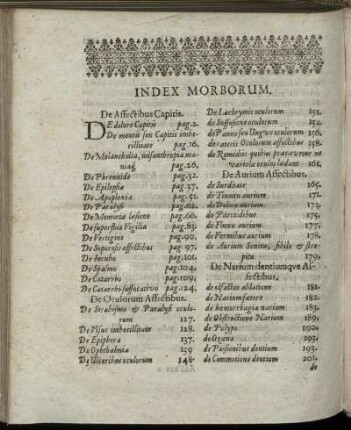 INDEX MORBORUM.
De Affectibus Capitis.
DE dolore Capitis pag.2.
De mentis seu Capitis imbe-
cillitate pag.16.
De Melancholia, insanthropia ma-
niaq́; pag.26.
De Phrenitide pag.32.
De Epilepsia pag.37.
De Apoplexia pag.51.
De Paralysi pag.
De Memoria laesione pag.66.
De superflua Vigilia pag.83.
De Vertigine pag.90.
De Soporosis affectibus pag.97.
De Incubo pag.101.
De Spasmo pag.104.
De Catarrho pag.109.
De Catarrho suffocativo pag.124.
De Oculorum Affectibus.
De Strabismo & Paralysi oculo-
rum 127.
De Visus imbecillitate 128.
De Epiphora 137.
De Ophthalmia 139
De Ulceribus oculorum 148.
De Lachrymis oculorum 151.
de Suffusione oculorum
de Panno seu Ungue oculorum 156.
de caeteris Oculorum affectibus 158.
de Remediis quibus
oculos laedant 161.
De Aurium Affectibus.
de Surditate 165.
de Tinnitu aurium 172.
de Dolore aurium 172.
de Parotidibus 175.
de Fluxu aurium 177.
de Vermibus aurium 178.
de Aurium Sonitu, sibilo & stre-
pitu 179.
De Narium dentiumque Af-
fectibus.
de olfactus ablatione 181.
de Narium faetore 182.
de haemorrhagia narium 183.
de Obstructione Narium 189.
de Polypo 190.
de Ozaena 193.
de Passionibus dentium 193.
de Commotione dentium 201.
de